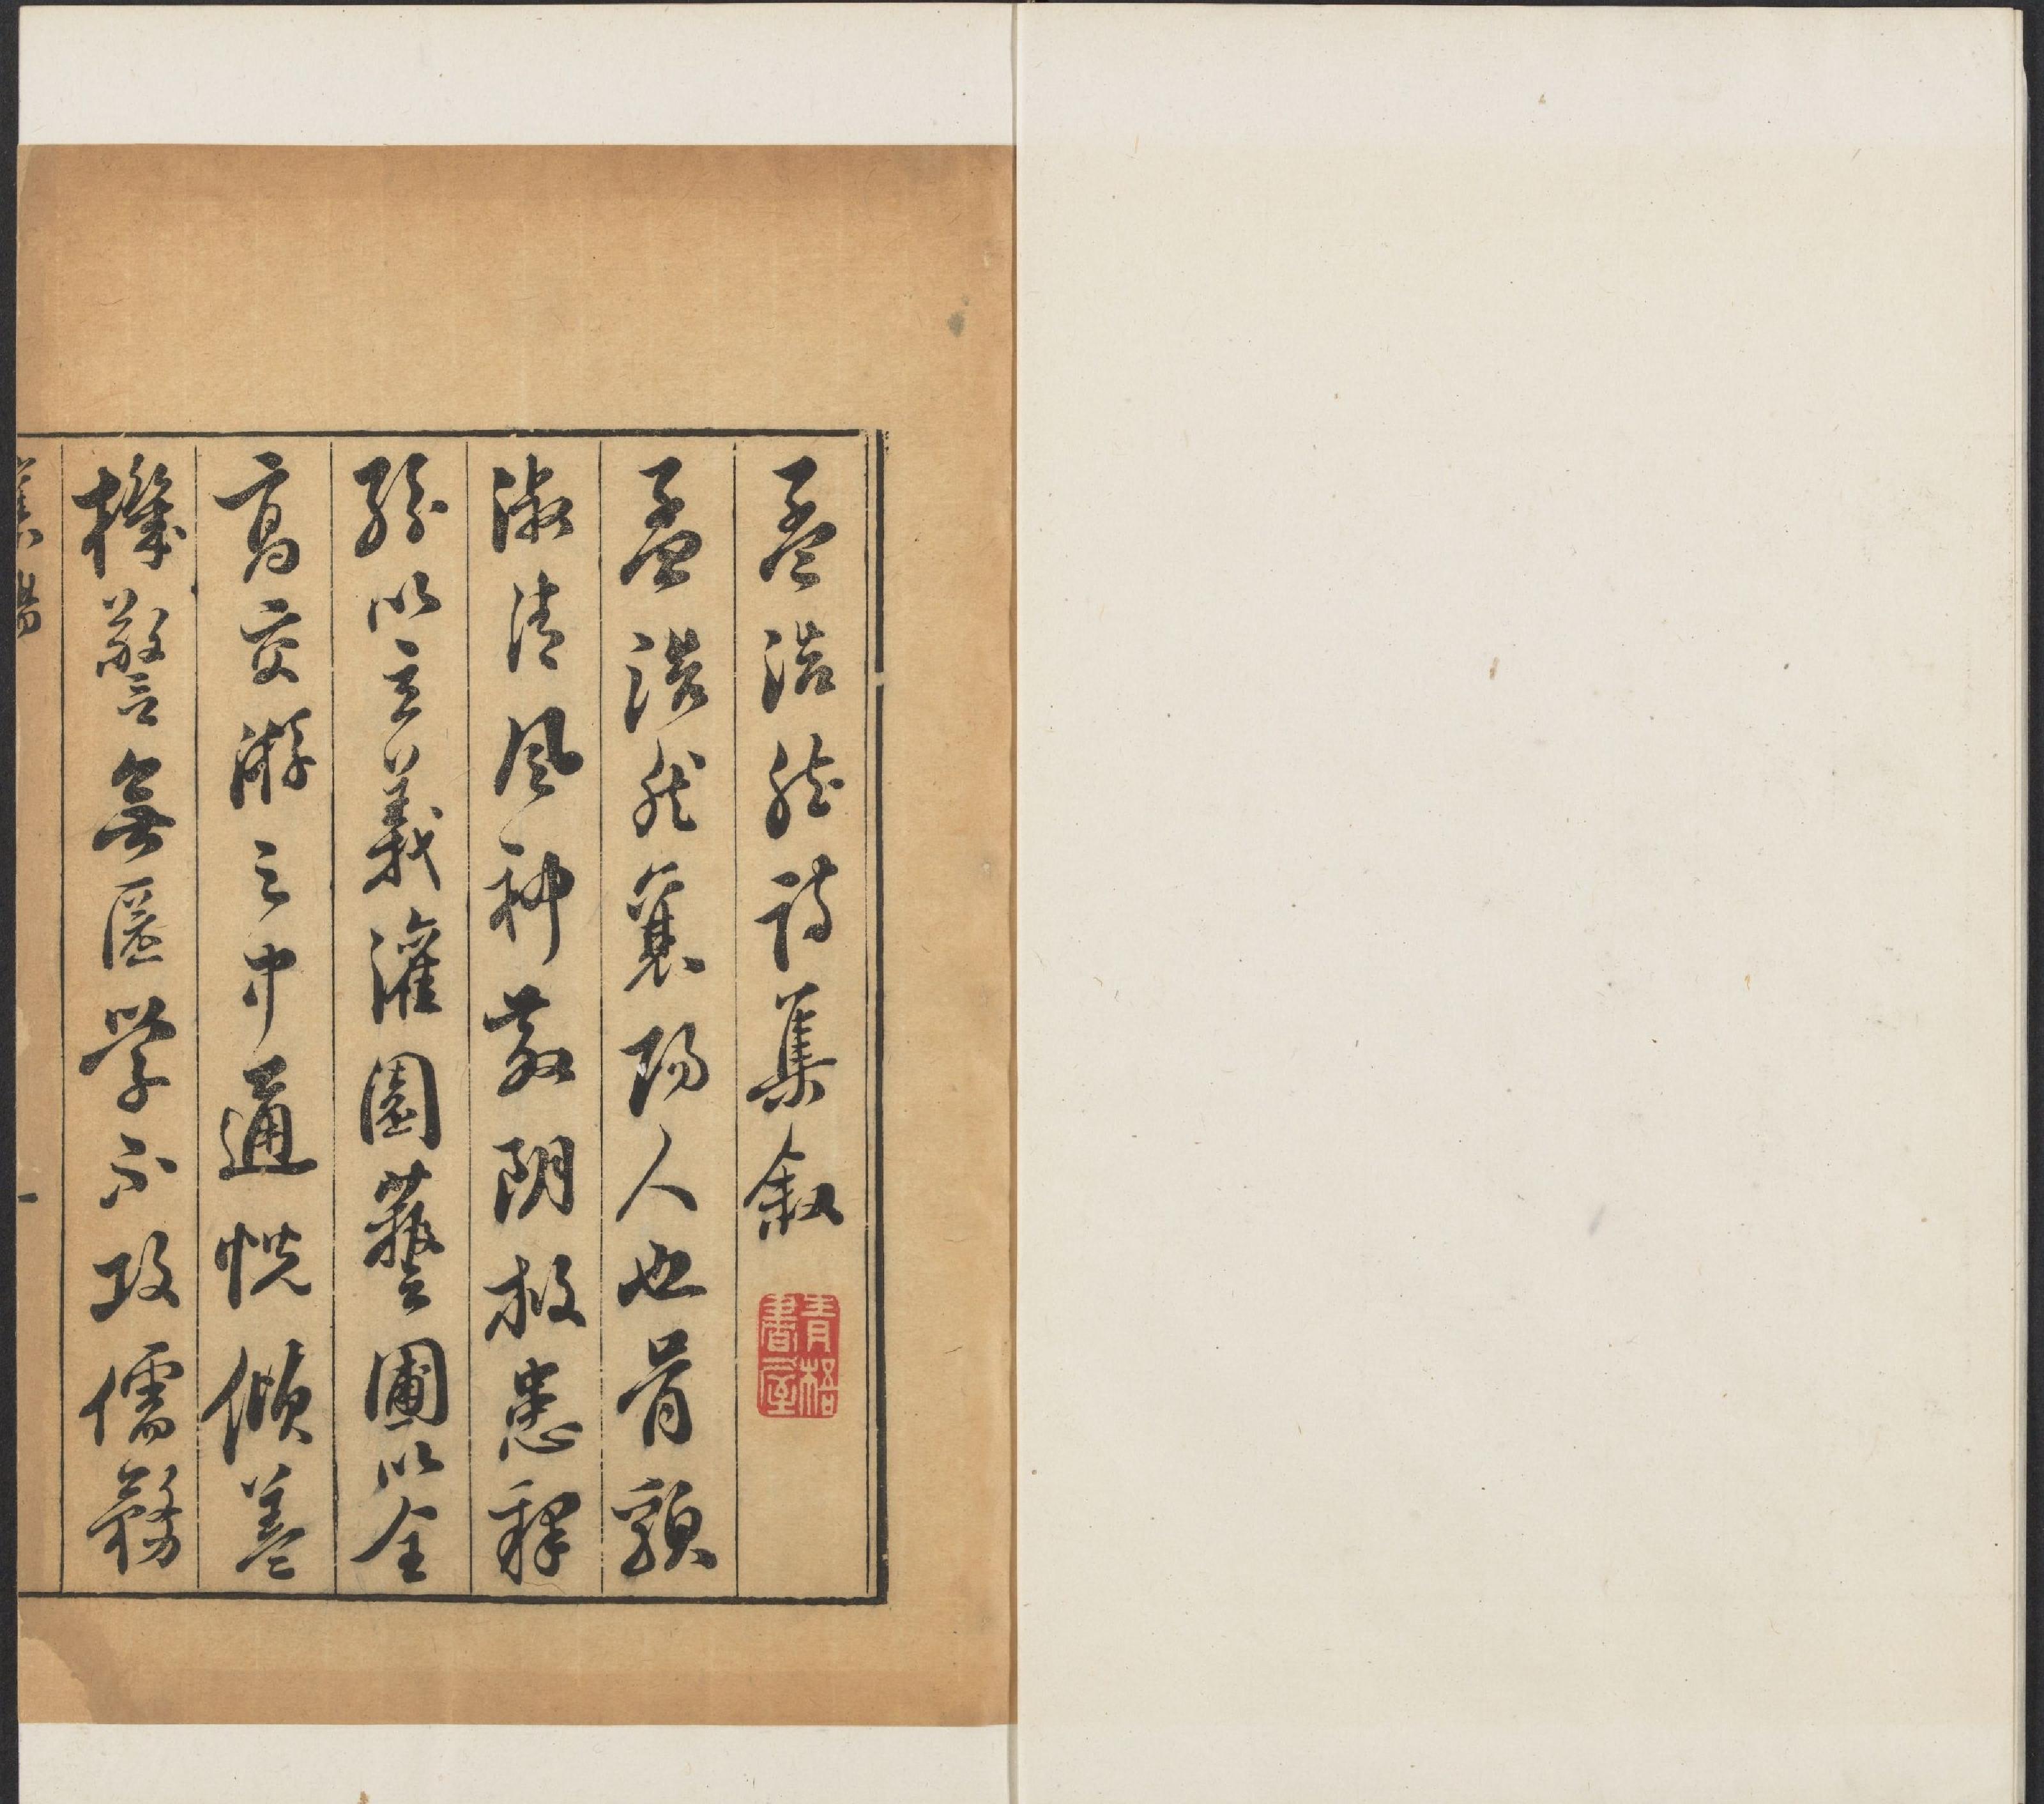 孟浩然詩集叙
青梧書屋
孟浩然襄陽人也骨貌
淑清風神散朗救患釋
紛以立義灌園藝圃以全
高交游之中通悦傾盖
機警無匿學不攻儒務